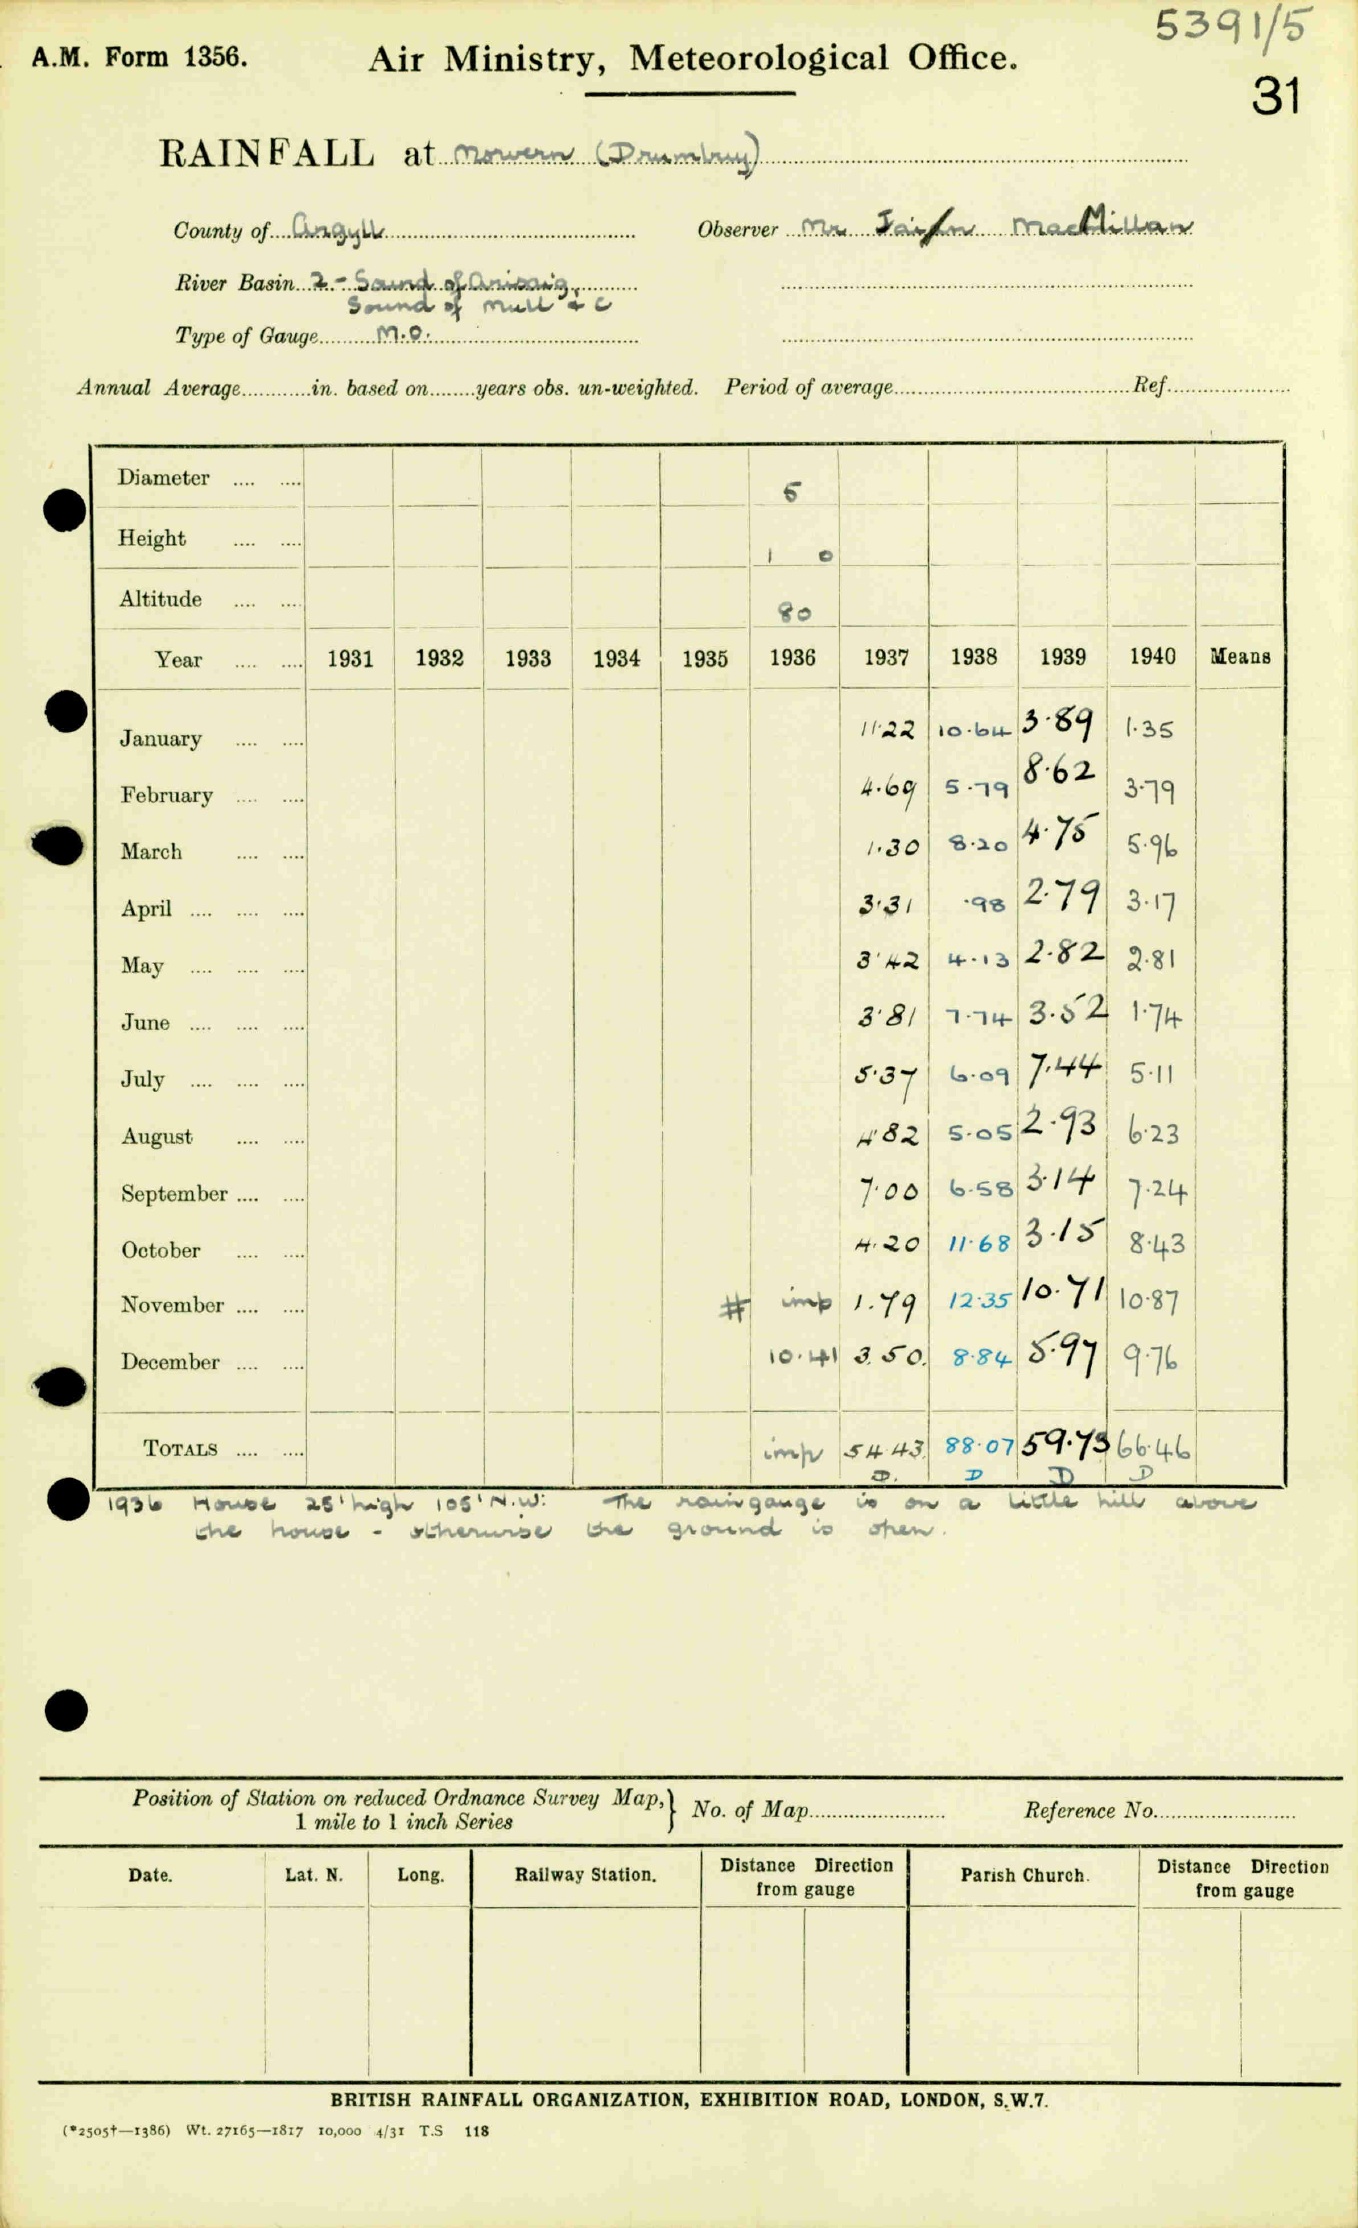 5391/5
A.M. Form 1356.
Air Ministry, Meteorological Office.
31
RAINFALL at Morvern (Drumbuy)
County of Argyll
Observer Mr Iain MacMillan
River Basin 2 - Sound of Arisaig,
Sound of Mull & C
Type of Gauge M.O.
Annual Average in. based on years obs. un-weighted. Period of average Ref.
Diameter 5
Height 1 0
Altitude 80
Year 1931 1932 1933 1934 1935 1936 1937 1938 1939 1940 Means
January 11.22 10.64 3.89 1.35
February 4.69 5.79 8.62 3.79
March 1.30 8.20 4.75 5.96
April 3.31 .98 2.79 3.17
May 3.42 4.13 2.82 2.81
June 3.81 7.74 3.52 1.74
July 5.37 6.09 7.44 5.11
August 4.82 5.05 2.93 6.23
September 7.00 6.58 3.14 7.24
October 4.20 11.68 3.15 8.43
November # imp 1.79 12.35 10.71 10.87
December 10.41 3.50 8.84 5.97 9.76
TOTALS imp 54.43 88.07 59.73 66.46
D. D D D
1936 House 25' high 105' N.W: The raingauge is on a little hill above
the house - otherwise the ground is open.
Position of Station on reduced Ordnance Survey Map,} No. of Map Reference No.
1 mile to 1 inch Series
Date. Lat. N. Long. Railway Station. Distance Direction from gauge Parish Church. Distance Direction from gauge
BRITISH RAINFALL ORGANIZATION, EXHIBITION ROAD, LONDON, S.W.7.
(*2505†—1386) Wt. 27165—1817 10,000 4/31 T.S 118